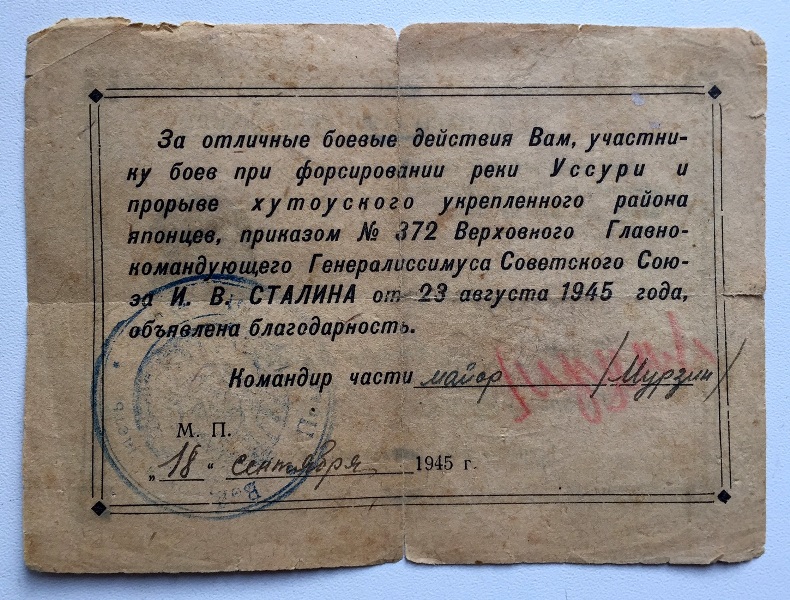 За отличные боевые действия Вам, участни-
ку боев при форсировании реки Уссури и
прорыве хутоуского укрепленного района
японцев, приказом № 372 Верховного Главно-
командующего Генералиссимуса Советского Сою-
за И. В. СТАЛИНА от 23 августа 1945 года,
объявлена благодарность.
Командир части майор /Мурзин/
М. П.
„18“ сентября 1945 г.